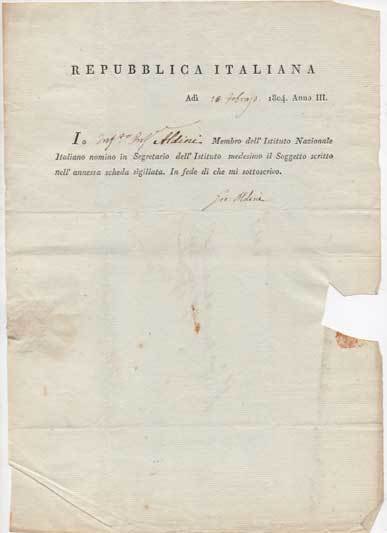 REPUBBLICA ITALIANA
Adì 16 febrajo 1804. Anno III.
Io Inf.to Prof. Aldini Membro dell' Istituto Nazionale
Italiano nomino in Segretario dell' Istituto medesimo il Soggetto scritto
nell' annessa scheda sigillata. In fede di che mi sottoscrivo.
Gio. Aldini